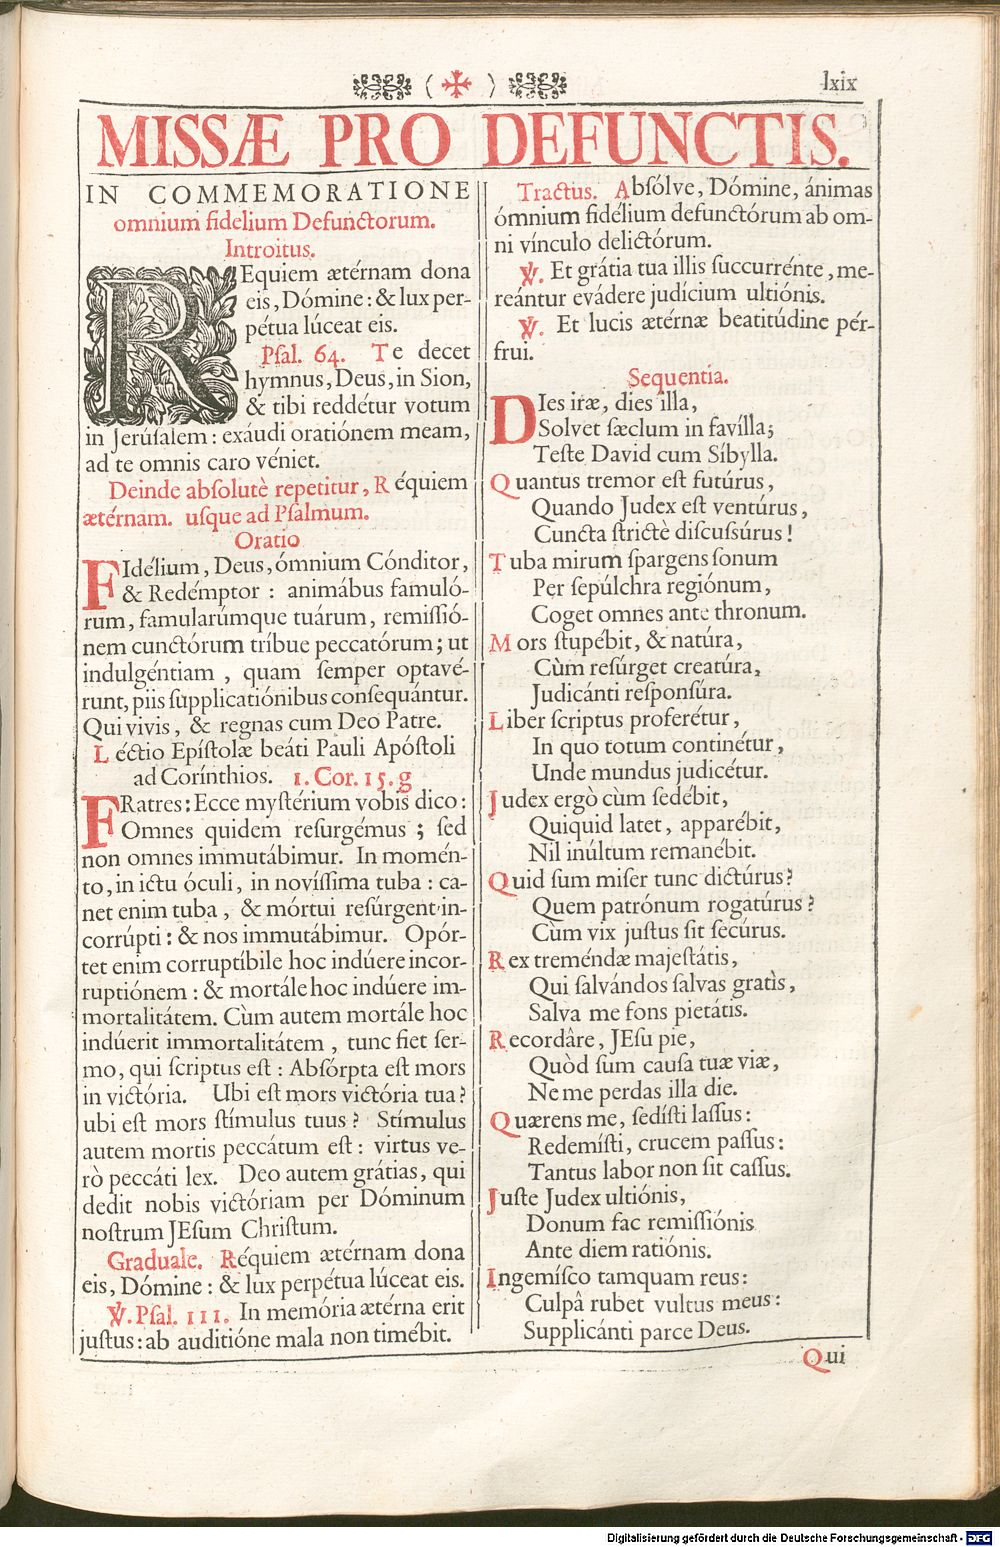 ( ✠ ) lxix
MISSÆ PRO DEFUNCTIS.
IN COMMEMORATIONE
omnium fidelium Defunctorum.
Introitus.
REquiem ætérnam dona
eis, Dómine: & lux per-
pétua lúceat eis.
Pſal. 64. Te decet
hymnus, Deus, in Sion,
& tibi reddétur votum
in Jerúſalem: exáudi oratiónem meam,
ad te omnis caro véniet.
Deinde abſolutè repetitur, Réquiem
ætérnam. uſque ad Pſalmum.
Oratio
FIdélium, Deus, ómnium Cónditor,
& Redémptor: animábus famuló-
rum, famularúmque tuárum, remiſſió-
nem cunctórum tríbue peccatórum; ut
indulgéntiam, quam ſemper optavé-
runt, piis ſupplicatiónibus conſequántur.
Qui vivis, & regnas cum Deo Patre.
Léctio Epíſtolæ beáti Pauli Apóſtoli
ad Corínthios. 1. Cor. 15. g
FRatres: Ecce myſtérium vobis dico:
Omnes quidem reſurgémus; ſed
non omnes immutábimur. In momén-
to, in ictu óculi, in novíſſima tuba: ca-
net enim tuba, & mórtui reſúrgent in-
corrúpti: & nos immutábimur. Opór-
tet enim corruptíbile hoc indúere incor-
ruptiónem: & mortále hoc indúere im-
mortalitátem. Cùm autem mortále hoc
indúerit immortalitátem, tunc fiet ſer-
mo, qui ſcriptus eſt: Abſórpta eſt mors
in victória. Ubi eſt mors victória tua?
ubi eſt mors ſtímulus tuus? Stímulus
autem mortis peccátum eſt: virtus ve-
rò peccáti lex. Deo autem grátias, qui
dedit nobis victóriam per Dóminum
noſtrum JEſum Chriſtum.
Graduale. Réquiem ætérnam dona
eis, Dómine: & lux perpétua lúceat eis.
℣. Pſal. 111. In memória ætérna erit
juſtus: ab auditióne mala non timébit.
Tractus. Abſólve, Dómine, ánimas
ómnium fidélium defunctórum ab om-
ni vínculo delictórum.
℣. Et grátia tua illis ſuccurrénte, me-
reántur evádere judícium ultiónis.
℣. Et lucis ætérnæ beatitúdine pér-
frui.
Sequentia.
DIes iræ, dies illa,
Solvet ſæclum in favílla;
Teſte David cum Síbylla.
Quantus tremor eſt futúrus,
Quando Judex eſt ventúrus,
Cuncta ſtrictè diſcuſsúrus!
Tuba mirum ſpargens ſonum
Per ſepúlchra regiónum,
Coget omnes ante thronum.
Mors ſtupébit, & natúra,
Cùm reſúrget creatúra,
Judicánti reſponſúra.
Liber ſcriptus proferétur,
In quo totum continétur,
Unde mundus judicétur.
Judex ergò cùm ſedébit,
Quiquid latet, apparébit,
Nil inúltum remanébit.
Quid ſum miſer tunc dictúrus?
Quem patrónum rogatúrus?
Cùm vix juſtus ſit ſecúrus.
Rex treméndæ majeſtátis,
Qui ſalvándos ſalvas gratìs,
Salva me fons pietátis.
Recordâre, JEſu pie,
Quòd ſum cauſa tuæ viæ,
Ne me perdas illa die.
Quærens me, ſedíſti laſſus:
Redemíſti, crucem paſſus:
Tantus labor non ſit caſſus.
Juſte Judex ultiónis,
Donum fac remiſſiónis
Ante diem ratiónis.
Ingemíſco tamquam reus:
Culpâ rubet vultus meus:
Supplicánti parce Deus.
Qui
Digitalisierung gefördert durch die Deutsche Forschungsgemeinschaft - DFG